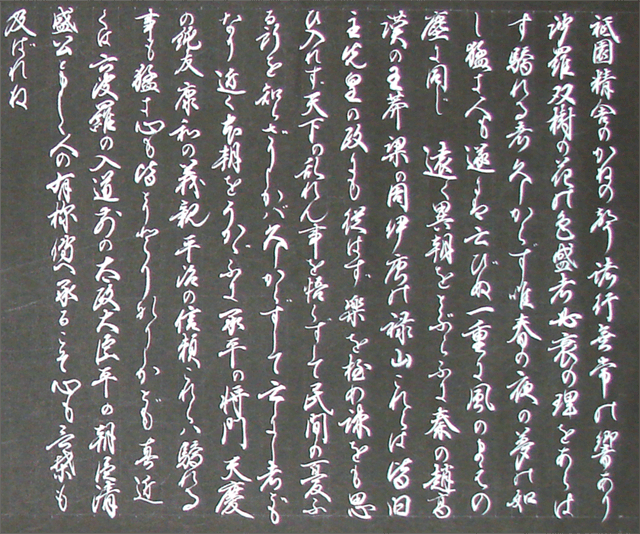 祇園精舎のかねの聲諸行無常の響あり
沙羅双樹の花の色盛者必衰の理をあらは
す驕れる者久しからず唯春の夜の夢の如
し猛き人も遂には亡びぬ一重に風のまへの
塵に同じ 遠く異朝をとぶらふに秦の趙高
漢の王莽梁の周伊唐の禄山これらは皆旧
主先皇の政にも従はず楽を極め諌をも思
ひ入れず天下の乱れん事を悟らずして民間の憂ふ
る所を知らざりしかば久しからずして亡にし者ども
なり近く本朝をうかがふに承平の将門 天慶
の純友康和の義親平治の信頼これらは驕れる
事も猛き心も皆とりどりなりしかども 真近
くは六波羅の入道前の太政大臣平の朝臣清
盛公と申しし人の有様伝へ承るこそ心も言葉も
及ばれね